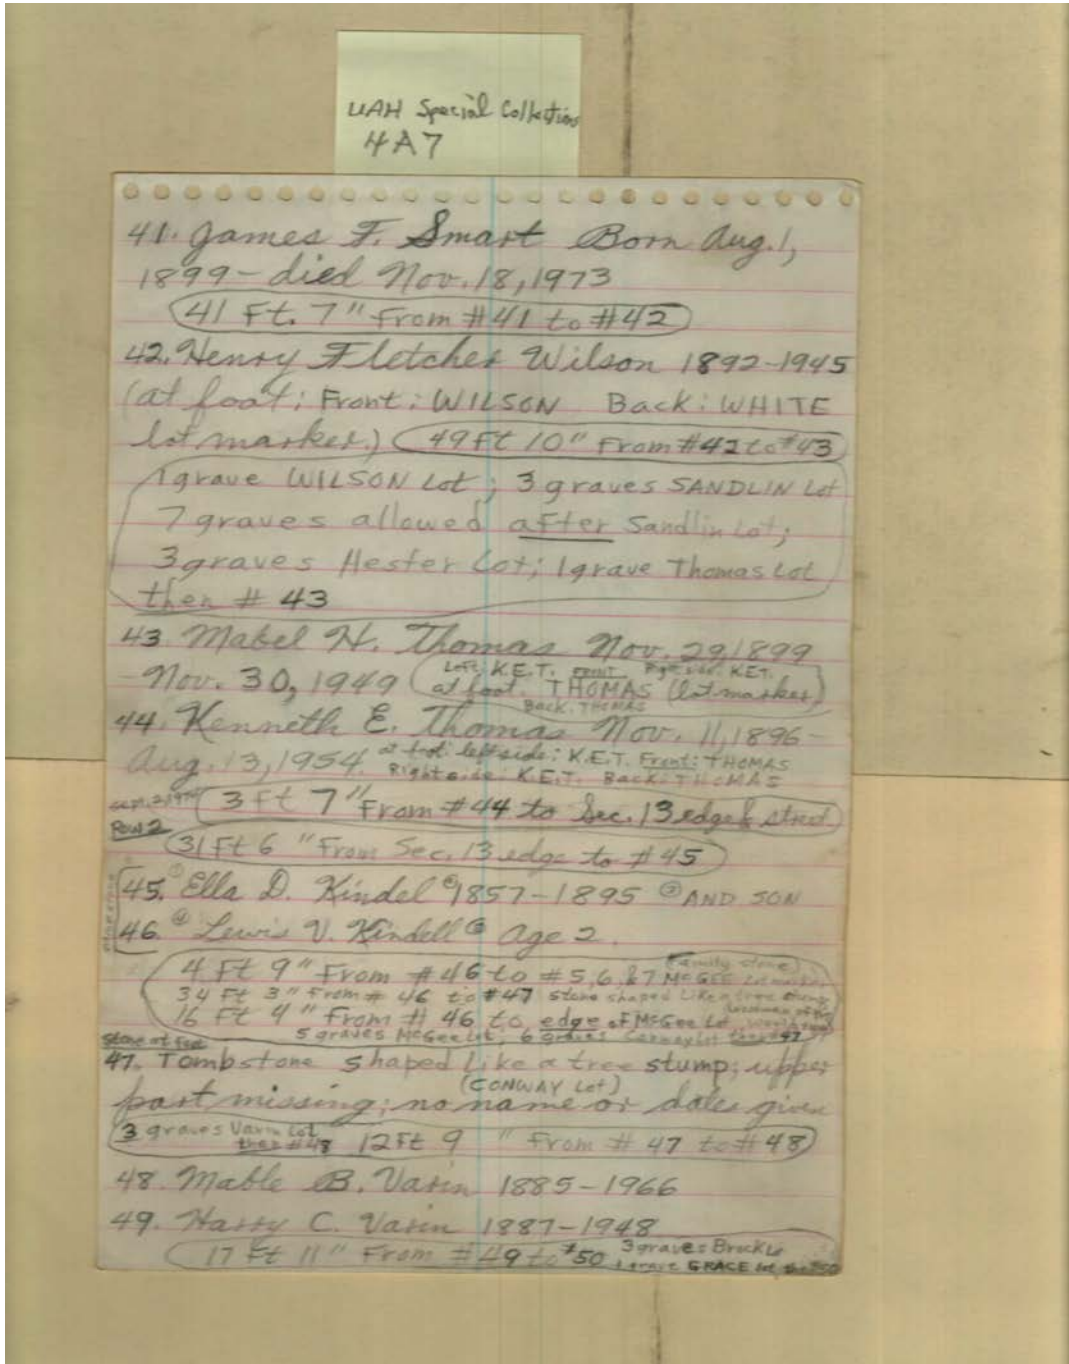 UAH Special Collections
4A7
41. James F. Smart Born Aug. 1,
1899 - died Nov. 18, 1973
41 Ft. 7" From #41 to #42
42. Henry Fletcher Wilson 1892-1945
(at foot: Front: WILSON Back: WHITE
lot marker.) 49 Ft 10" From #42 to #43
1 grave WILSON Lot; 3 graves SANDLIN Lot
7 graves allowed after Sandlin Lot;
3 graves Hester Lot; 1 grave Thomas Lot
then # 43
43. Mabel H. Thomas Nov. 29, 1899
- Nov. 30, 1949
Left: K.E.T. FRONT K.E.T.
at foot. THOMAS (lot marker)
Back. THOMAS
44. Kenneth E. Thomas Nov. 11, 1896-
Aug. 13, 1954. at foot: left side: K.E.T. Front: THOMAS
Right side: K.E.T. Back: THOMAS
3 Ft 7" From #44 to Sec. 13 edge & street
Row 2
31 Ft 6" From Sec. 13 edge to #45
45. ① Ella D. Kindel ② 1857-1895 ③ AND SON
46. ④ Lewis V. Kindell ⑤ Age 2.
4 Ft 9" From #46 to #5, 6, & 7 McGEE (family stone)
34 Ft 3" From # 46 to #47 stone shaped like a tree stump
16 Ft 4" From # 46 to edge of McGee Lot
5 graves McGee Lot, 6 graves Conway Lot then #47
stone at foot
47. Tombstone shaped like a tree stump; upper
(CONWAY Lot)
part missing; no name or dates given
3 graves Varin Lot
then #48 12 Ft 9" From # 47 to #48
48. Mable B. Varin 1885-1966
49. Harry C. Varin 1887-1948
17 Ft 11" From #49 to #50 3 graves
1 grave GRACE lot, then #50